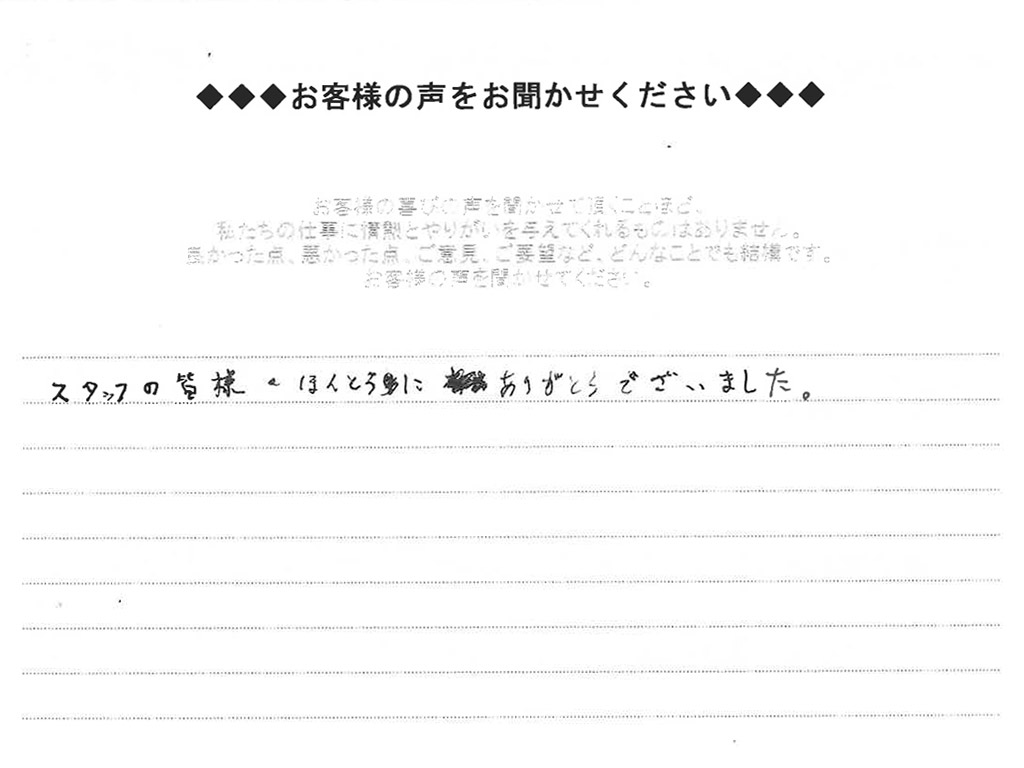 ◆◆◆お客様の声をお聞かせください◆◆◆
お客様の喜びの声を聞かせて頂くことほど、
私たちの仕事に情熱とやりがいを与えてくれるものはありません。
良かった点、悪かった点、ご意見、ご要望など、どんなことでも結構です。
お客様の声を聞かせてください。
スタッフの皆様 ほんとうに ありがとうございました。